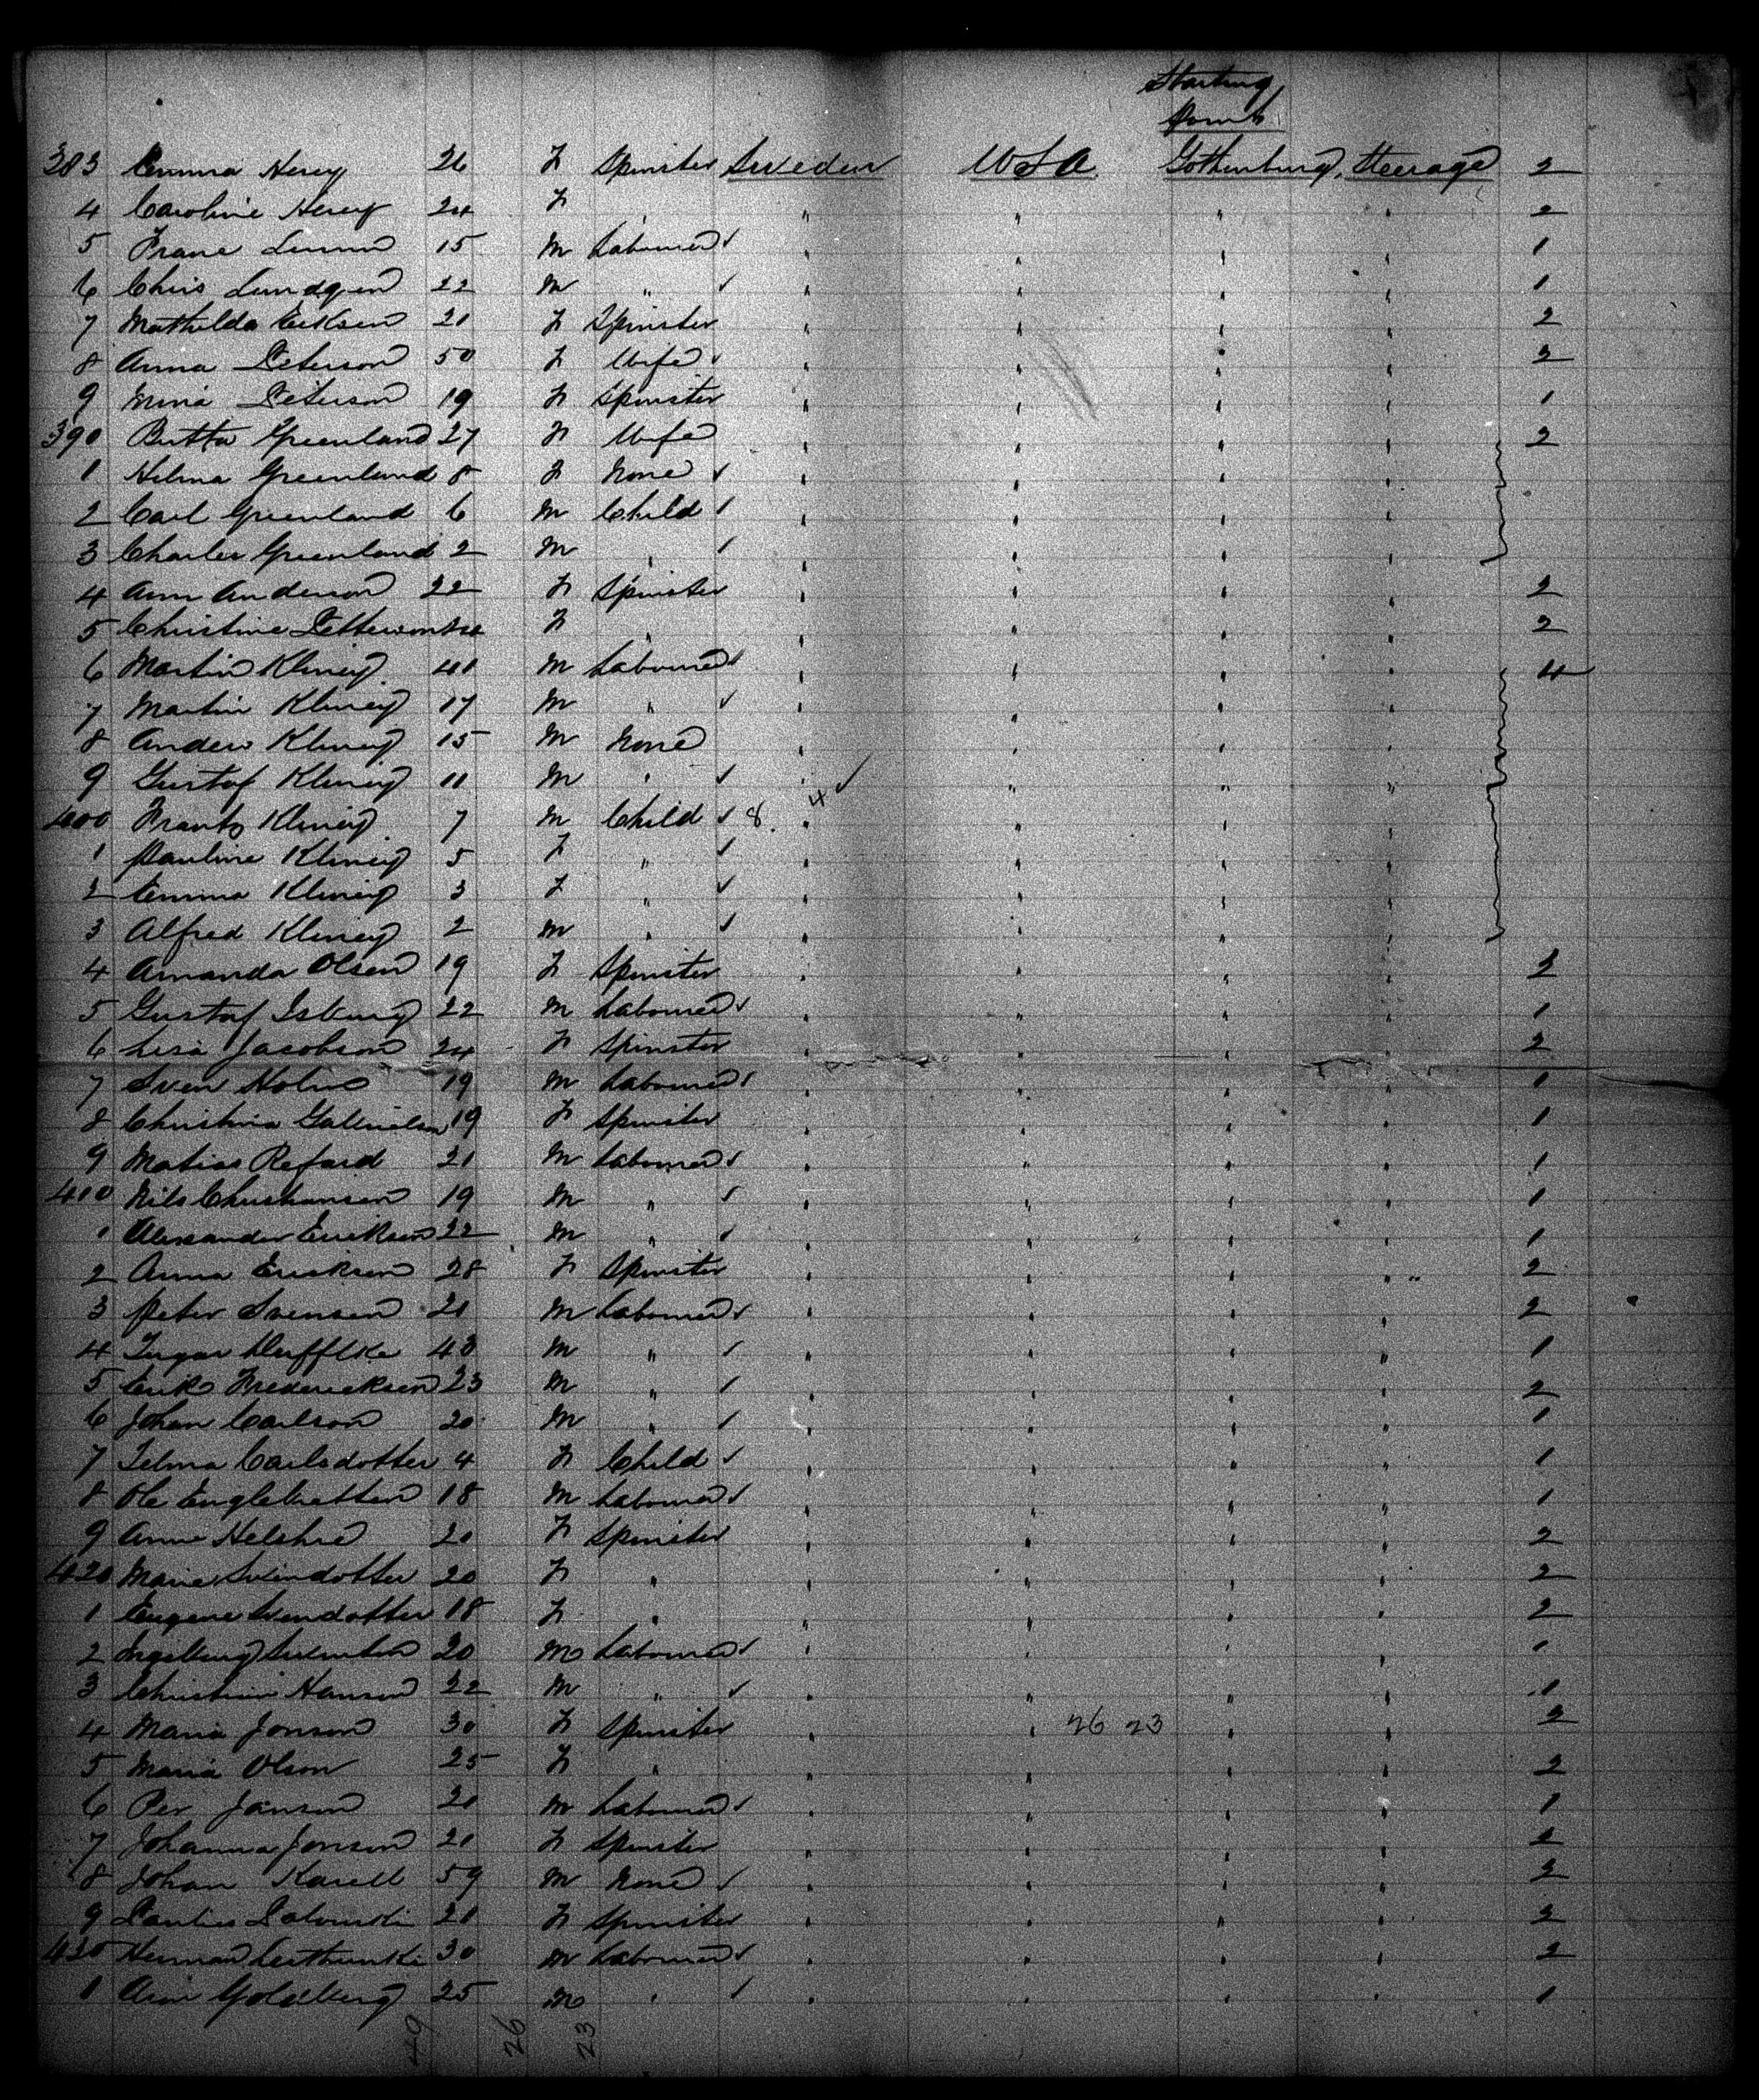 Starting
Point
383 Emma Henry 26 F Spinster Sweden USA Gothenburg Steerage 2
4 Caroline Henry 24 F " " " " " 2
5 Franc 15 M Labourer ✓ " " " " 1
6 Chris Lundgren 22 M " ✓ " " " " 1
7 Mathilda Eriksen 21 F Spinster " " " " 2
8 Anna Peterson 50 F Wife ✓ " " " " 2
9 Mina Peterson 19 F Spinster " " " " 1
390 Britta Greenland 27 F Wife " " " " 2
1 Hilma Greenland 8 F None ✓ " " " "
2 Carl Greenland 6 M Child ✓ " " " "
3 Charles Greenland 2 M " ✓ " " " "
4 Ann Anderson 22 F Spinster " " " " 2
5 Christine F " " " " " 2
6 Martin Kliney 41 M Labourer ✓ " " " " 4
7 Martin Kliney 17 M " ✓ " " " "
8 Andew Kliney 15 M None " " " "
9 Gustaf Kliney 11 M " ✓ " 4 ✓ " " "
400 Frantz Kliney 7 M Child ✓ 8. " " " "
1 Pauline Kliney 5 F " ✓ " " " "
2 Emma Kliney 3 F " ✓ " " " "
3 Alfred Kliney 2 M " ✓ " " " "
4 Amanda Olsen 19 F Spinster " " " " 2
5 Gustaf Isburg 22 M Labourer ✓ " " " " 1
6 Lisa Jacobson 24 F Spinster " " " " 2
7 Sven Holm 19 M Labourer ✓ " " " " 1
8 Christina 19 F Spinster " " " " 1
9 Matias Refard 21 M Labourer ✓ " " " " 1
410 Nils Christiansen 19 M " ✓ " " " " 1
1 Alexander Eriksen 22 M " ✓ " " " " 1
2 Anna Eriksen 28 F Spinster " " " " 2
3 Peter Svensen 21 M Labourer ✓ " " " " 2
4 43 M " ✓ " " " " 1
5 Erik Fredericksen 23 M " ✓ " " " " 2
6 Johan Carlson 20 M " ✓ " " " " 1
7 Telma Carlsdotter 4 F Child ✓ " " " " 1
8 Ole 18 M Labourer ✓ " " " " 1
9 Ann 20 F Spinster " " " " 2
420 Marie Svendotter 20 F " " " " " 2
1 Eugene Svendotter 18 F " " " " " 2
2 20 M Labourer ✓ " " " " 1
3 Christian Hanson 22 M " ✓ " " " " 1
4 Maria Jonson 30 F Spinster " " 26 23 " " 2
5 Maria Olson 25 F " " " " " 2
6 Per Janson 20 M Labourer ✓ " " " " 1
7 Johanna Jonson 21 F Spinster " " " " 2
8 Johan Karell 59 M None ✓ " " " " 2
9 21 F Spinster " " " " 2
430 Herman 30 M Labourer ✓ " " " " 2
1 Goldberg 25 M " ✓ " " " " 1
49 26 23